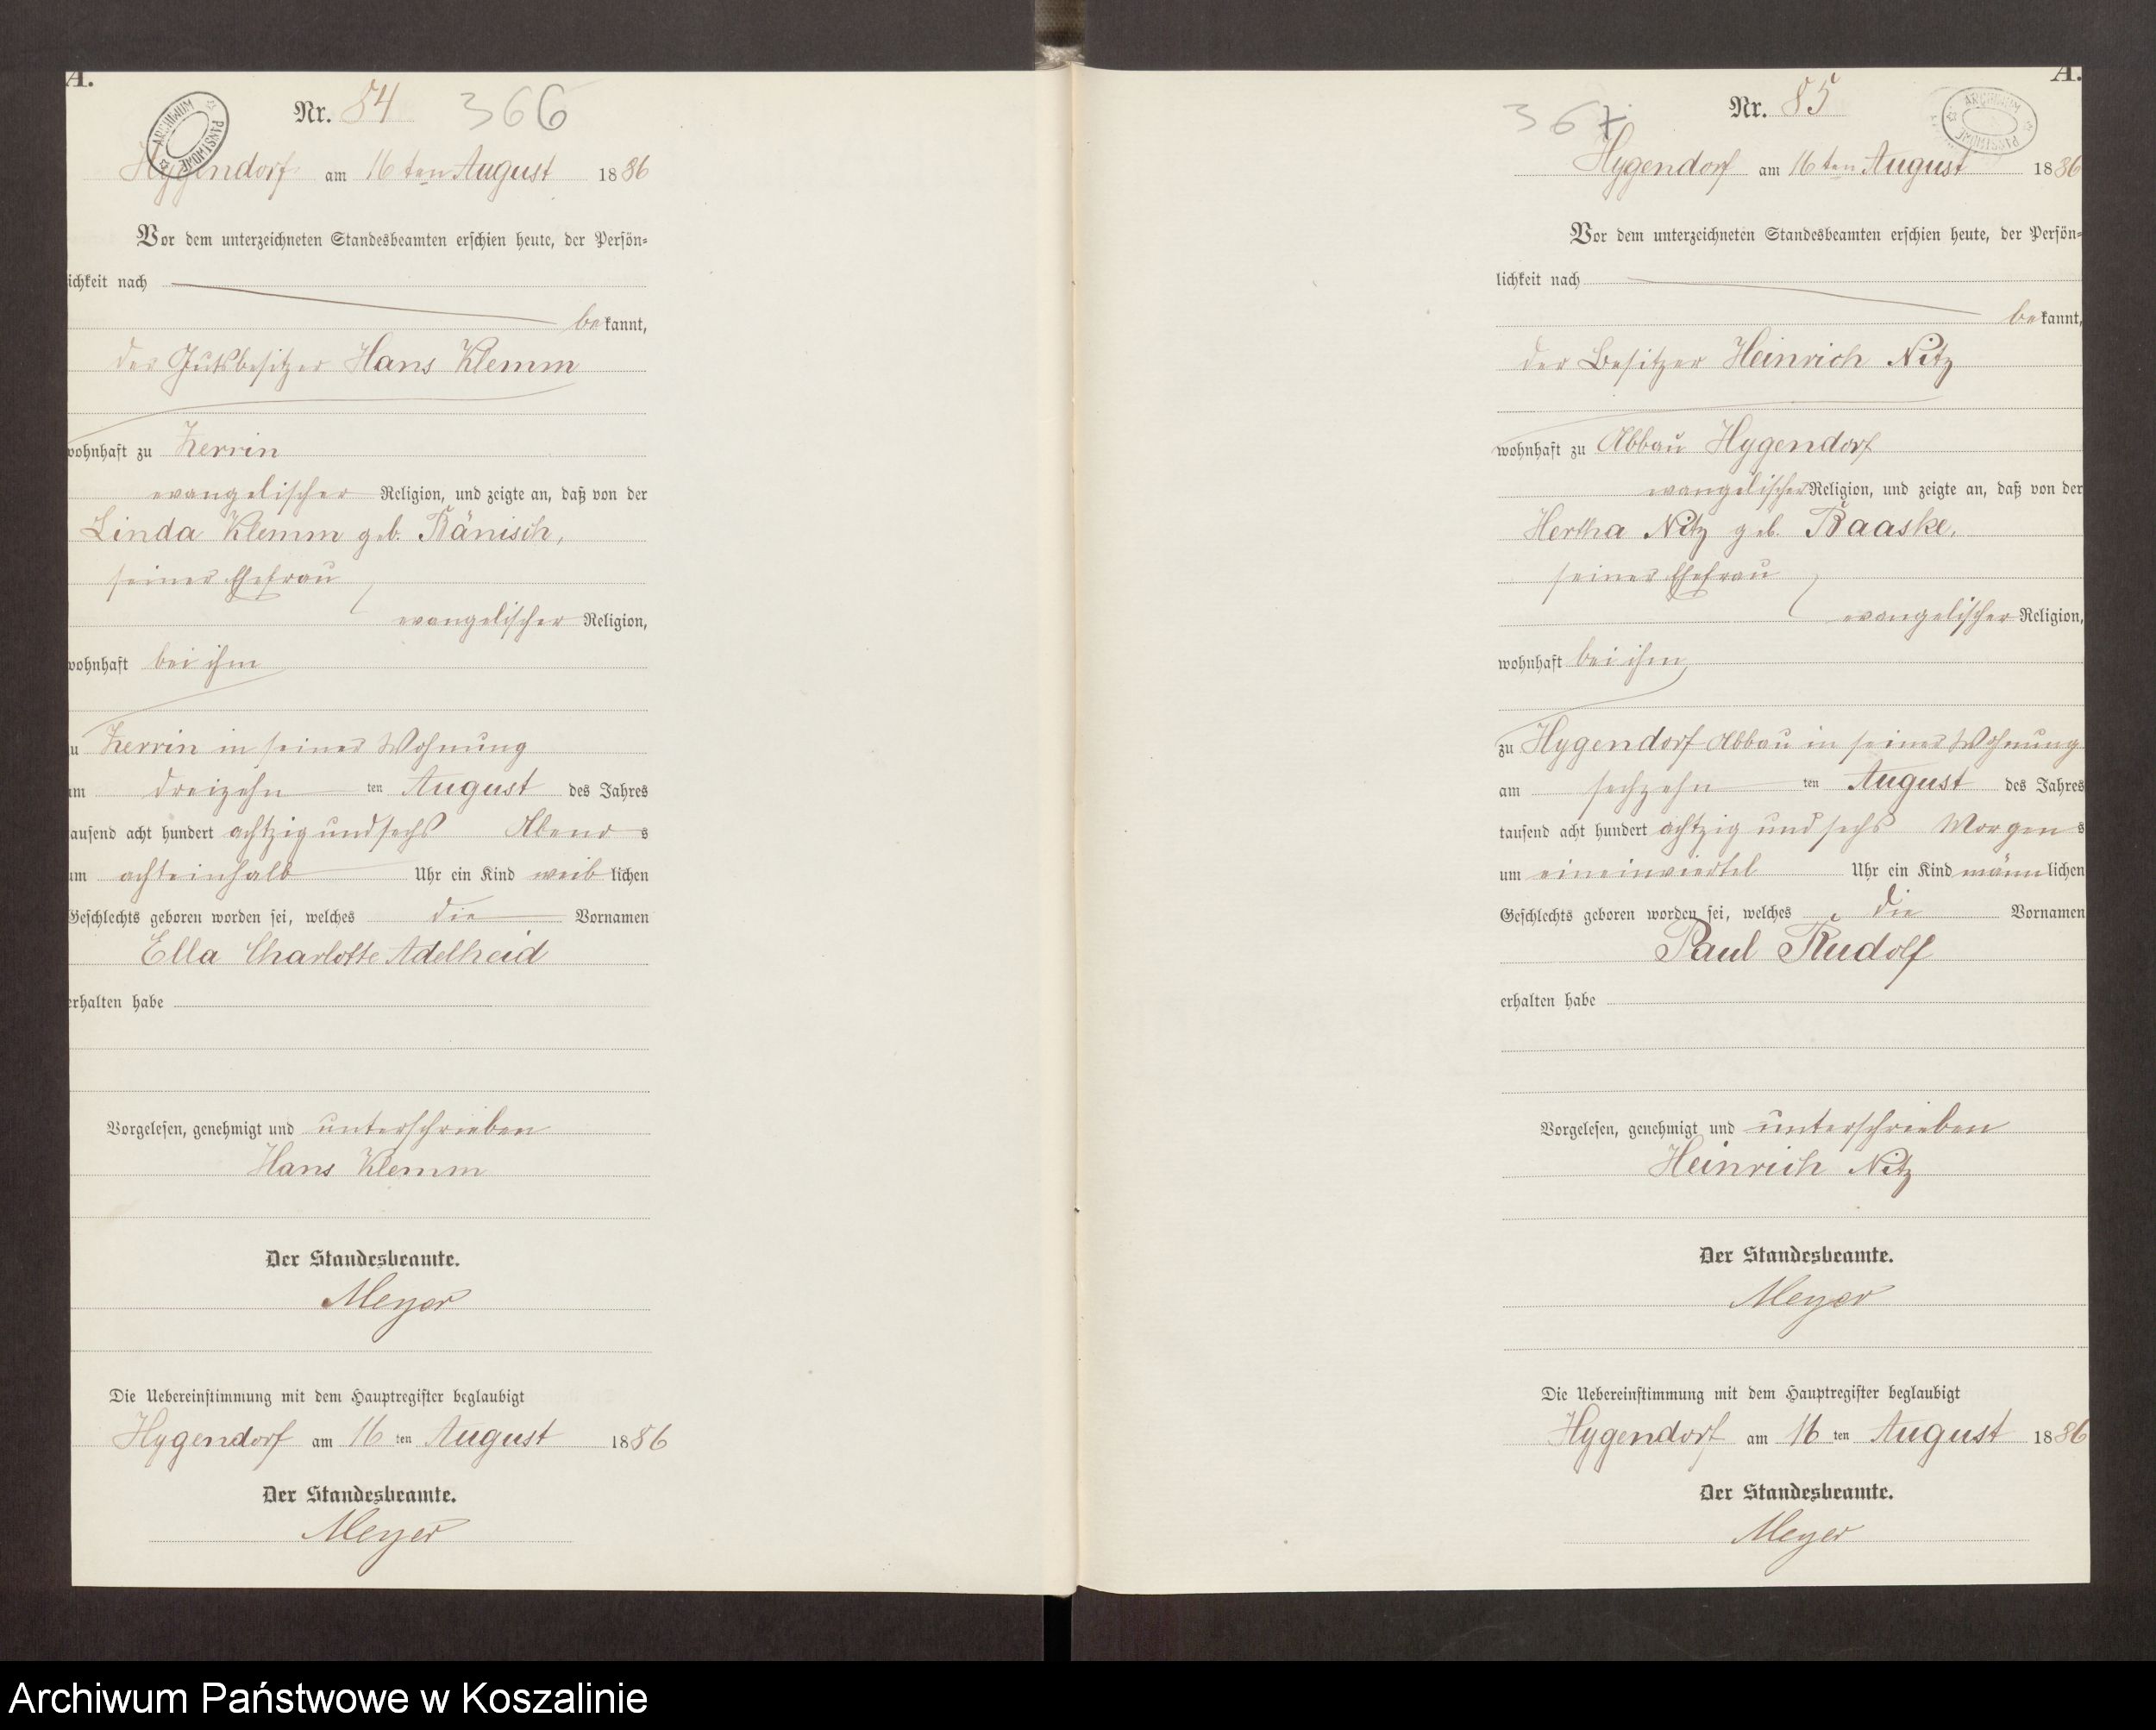 A.
Nr. 84 366
ARCHIWUM PAŃSTWOWE
Hygendorf am 16ten August 1886
Vor dem unterzeichneten Standesbeamten erschien heute, der Persön-
lichkeit nach
bekannt,
der Gutsbesitzer Hans Klemm
wohnhaft zu Zerrin
evangelischer Religion, und zeigte an, daß von der
Linda Klemm geb. Bänisch,
seiner Ehefrau
evangelischer Religion,
wohnhaft bei ihm
zu Zerrin in seiner Wohnung
am dreizehn ten August des Jahres
tausend acht hundert achtzig und sechs Abends
um achteinhalb Uhr ein Kind weiblichen
Geschlechts geboren worden sei, welches die Vornamen
Ella Charlotte Adelheid
erhalten habe
Vorgelesen, genehmigt und unterschrieben
Hans Klemm
Der Standesbeamte.
Meyer
Die Uebereinstimmung mit dem Hauptregister beglaubigt
Hygendorf am 16 ten August 1886
Der Standesbeamte.
Meyer
A.
367 Nr. 85
ARCHIWUM PAŃSTWOWE
Hygendorf am 16ten August 1886
Vor dem unterzeichneten Standesbeamten erschien heute, der Persön-
lichkeit nach
bekannt,
der Besitzer Heinrich Nitz
wohnhaft zu Abbau Hygendorf
evangelischer Religion, und zeigte an, daß von der
Hertha Nitz geb. Baaske,
seiner Ehefrau
evangelischer Religion,
wohnhaft bei ihm
zu Hygendorf Abbau in seiner Wohnung
am sechzehn ten August des Jahres
tausend acht hundert achtzig und sechs Morgens
um eineinviertel Uhr ein Kind männlichen
Geschlechts geboren worden sei, welches die Vornamen
Paul Rudolf
erhalten habe
Vorgelesen, genehmigt und unterschrieben
Heinrich Nitz
Der Standesbeamte.
Meyer
Die Uebereinstimmung mit dem Hauptregister beglaubigt
Hygendorf am 16 ten August 1886
Der Standesbeamte.
Meyer
Archiwum Państwowe w Koszalinie